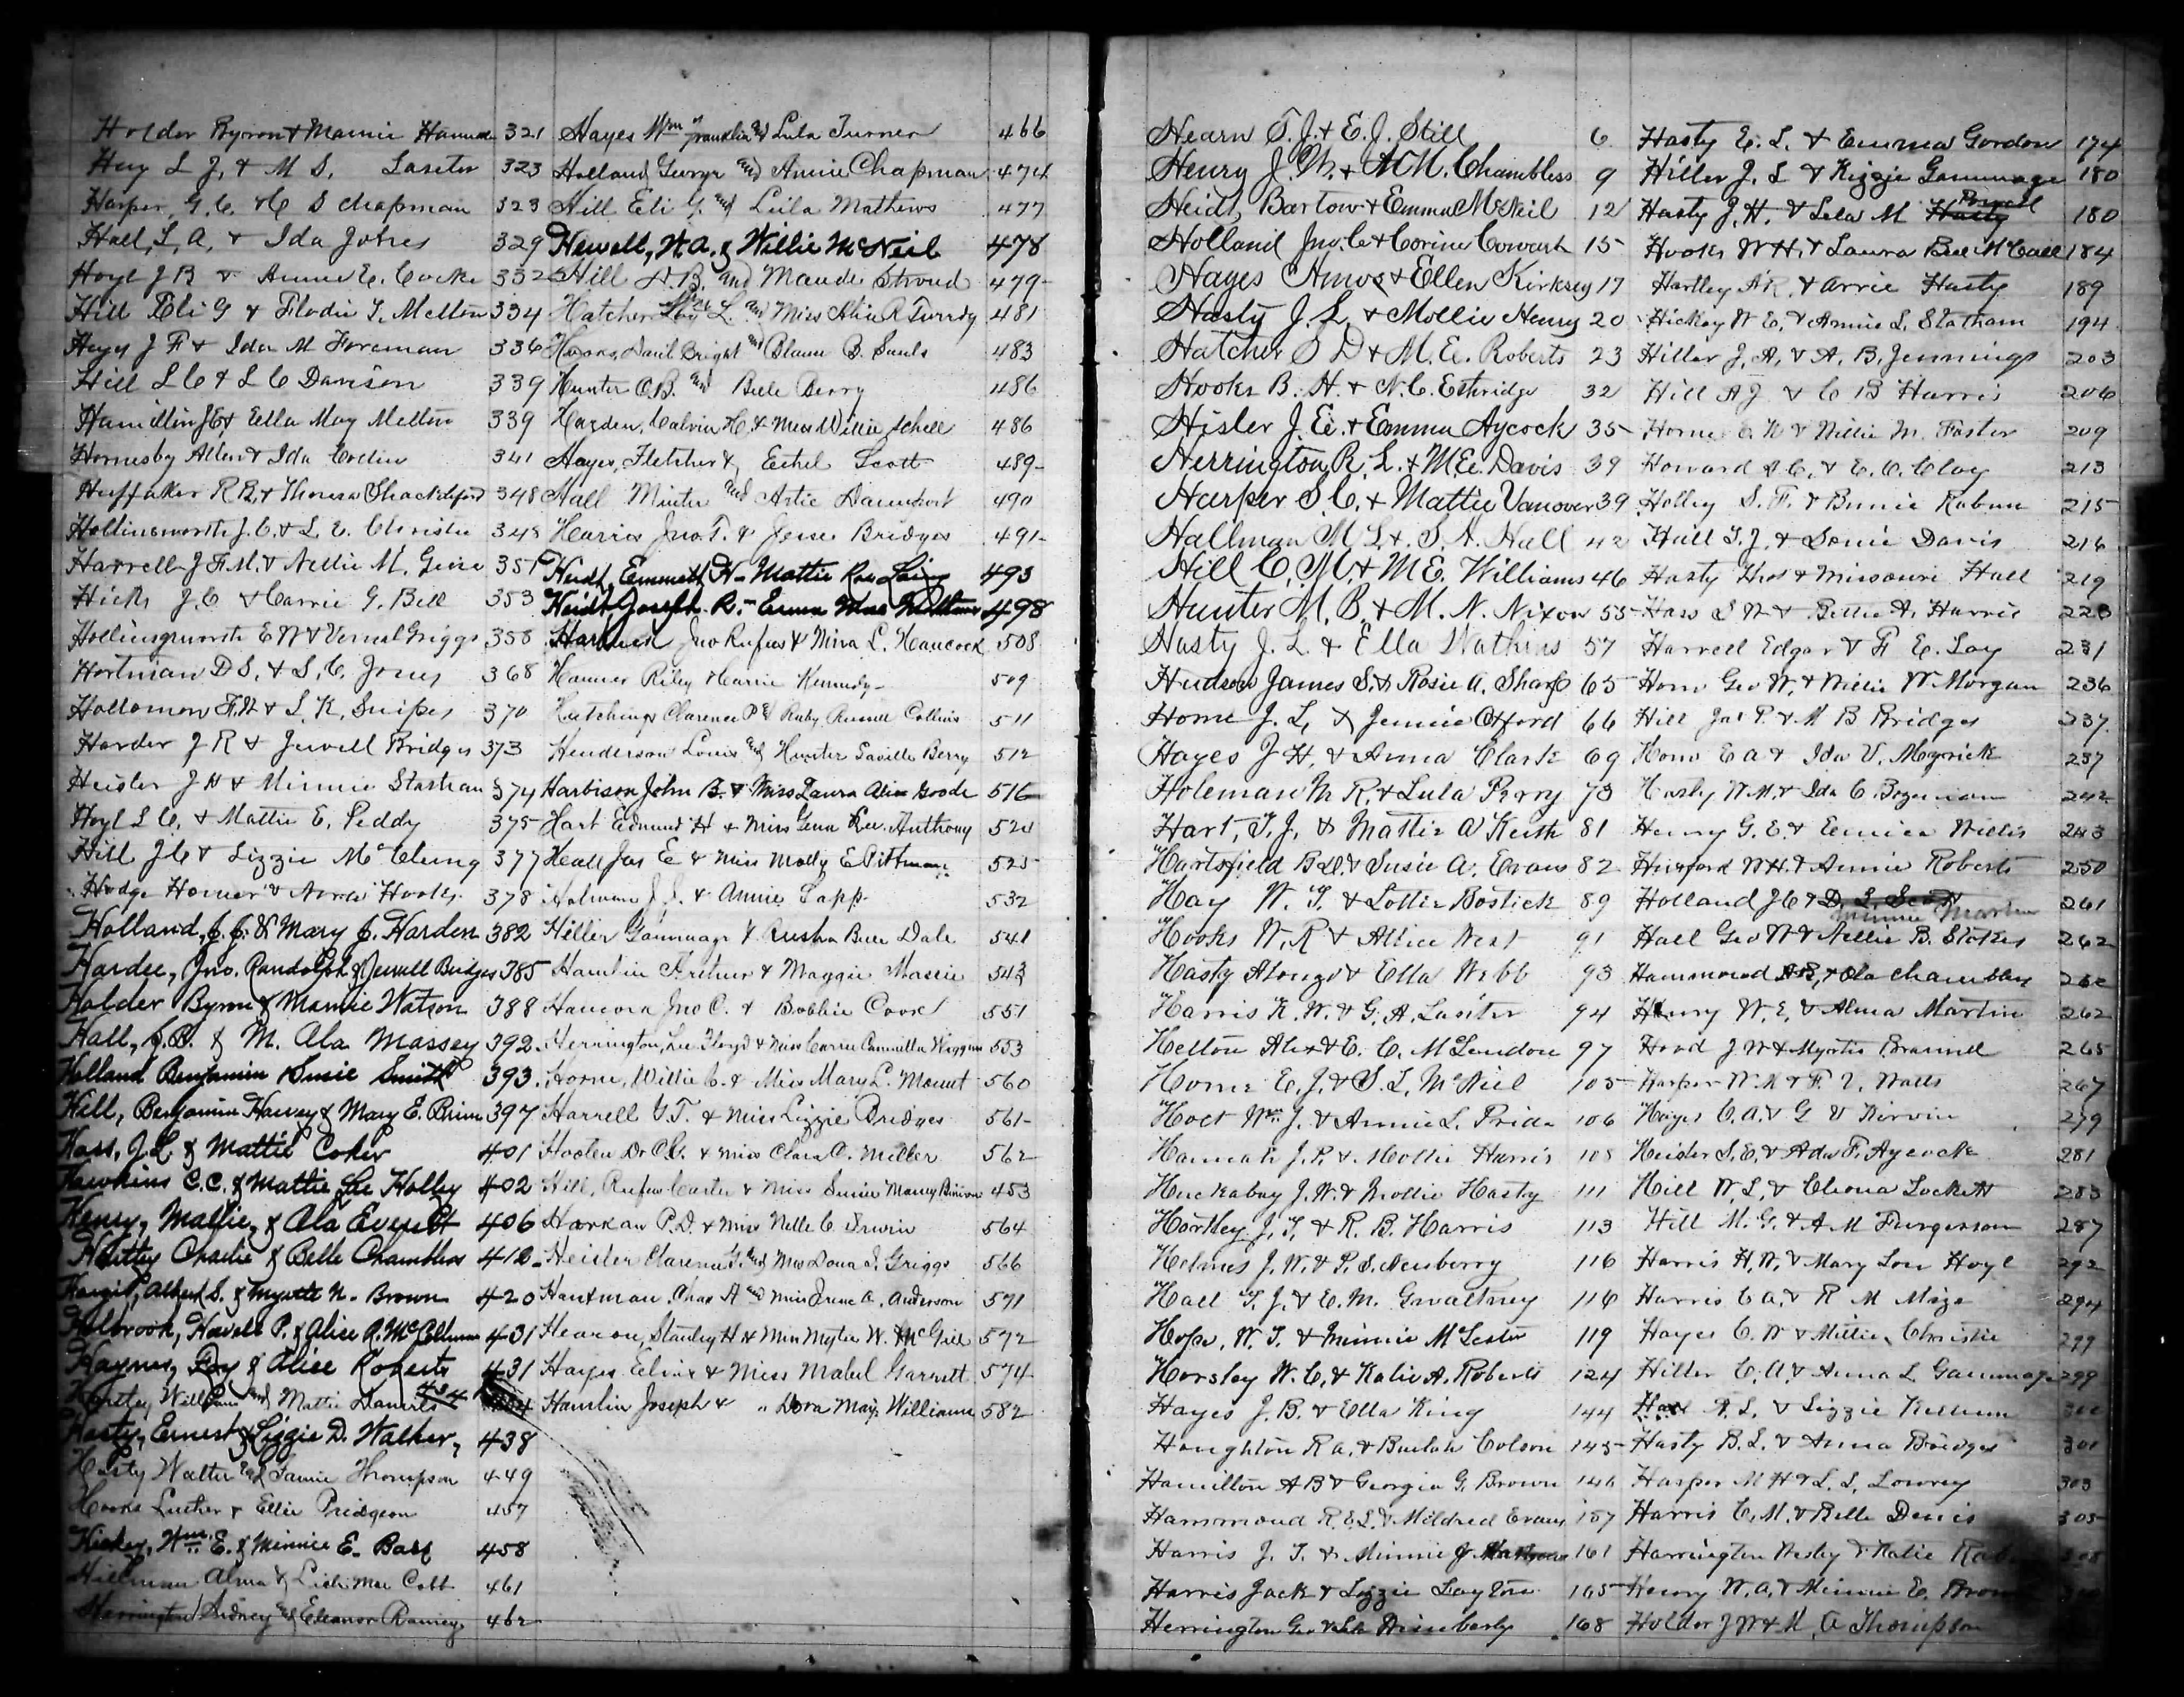 Holder Byron & Mamie 321
Huy L J. & M S. Lasiter 323
Harper G. C. & C S Chapman 323
Hall, L, A, & Ida Jones 329
Hoyl J B & Annie E. Cocke 332
Hill Eli G & Flodie T. Melton 334
Hayes J F & Ida M Foreman 336
Hill L C & L C Davison 339
Hamillin & Ella May Melton 339
Hornesby Allen & Ida 341
Huffaker R B, & Theresa Shackleford 348
Hollinsworth J. C. & L. E. Christie 348
Harrell J F M. & Nellie M. 351
Hicks J. C & Carrie G. Bell 353
Hollingsworth E W & Vernal Griggs 358
Hortman D S. & S. C. Jones 368
Hollomon F. W & L. K. Snipes 370
Harder J R & Jewell Bridges 373
Heisler J W & Minnie Statham 374
Hoyl L C, & Mattie E. Peddy 375
Hill J C & Lizzie McClung 377
Hodge Homer & Hooks 378
Holland, J. J. & Mary J. Harden 382
Hardee, Jno. Randolph & Jewell Bridges 385
Holder Byron & Mamie Watson 388
Hall, J. B. & M. Ola Massey 392
Holland Benjamin Susie Smith 393
Hill, Benjamin Harvey & Mary E. Brim 397
Hass, J. L. & Mattie Coker 401
Hawkins C. C. & Mattie Lee Holley 402
Henry, Mallie, & Ola Everett 406
Charlie & Belle Chambliss 412
Albert S. & Myrtle N. Brown 420
Holbrook, Howell P. & Alice R. 431
Haynes, Roy & Alice Roberts 431
Hartley, William and Mattie Daniels 434
Hasty, Ernest & Lizzie D. Walker, 438
Hasty Walter and Fannie Thompson 449
Hooks Luther & Ellie Pridgeon 457
Hickey, Wm. E. & Minnie E. Bass 458
Alma & Mae Cobb 461
Herrington Sidney and Eleanor Rainey 462
Hayes Wm Franklin and Lula Turner 466
Holland, George and Annie Chapman 474
Hill, Eli G. and Leila Mathews 477
Newell, W. A. & Willie McNeil 478
Hill A. B. and Maude Stroud 479
Hatcher L. and Miss Alice R Turrdy 481
Hooks, Daniel Bright and Blanch B. Sauls 483
Hunter O. B. and Belle Berry 486
Harden, Calvin H. & Miss Willie Schell 486
Hayes, Fletcher & Ethel Scott 489
Hall Minter and Artie Davenport 490
Harris Jno. T. & Jessie Bridges 491
Heidt, Emmett H - Mattie Rae Laing 493
Heidt Joseph R. - Erma Mae 498
Jno Rufus & Mina L. Hancock 508
Riley & Carrie Kennedy 509
Hutchings Clarence P & Ruby Russell Collins 511
Henderson Louis and Hunter Saville Berry 512
Harbison John B. & Miss Laura Alice Goode 516
Hart Edmund H & Miss Gena Lee Anthony 520
Heall Jas E & Miss Molly E. Pittman 525
Holman J. J. & Annie Sapp 532
Hiller Gammage & Rustha Belle Dale 541
Hamlin Arthur & Maggie Massee 543
Jno C. & Bobbie Cook 551
Herrington, Lee Floyd & Miss Carrie Camilla Wiggins 553
Horne, Willie C. & Miss Mary L. Mount 560
Harrell G. T. & Miss Lizzie Bridges 561
Hooten Dr C. & Miss Clara C. Miller 562
Hill, Rufus Carter & Miss Susie Maury Binion 453
Harkan P. D. & Miss Nelle C. Irwin 564
Heisler Clarence G. and Mrs Dona I. Griggs 566
Hartman, Chas A and Miss Irene A. Anderson 571
Hearon, Stanley H & Miss Mytie W. McGill 572
Hayes Elvin & Miss Mabel Garrett 574
Hamlin Joseph & " Dora May Williams 582
Hearn T. J. & E. J. Still 6
Henry J. W. & M. M. Chambless 9
Heidt, Bartow & Emma McNeil 12
Holland Jno. C. & Corine Cowart 15
Hayes Amos & Ellen Kirksey 17
Hasty J. L. & Mollie Henry 20
Hatcher S D & M. E. Roberts 23
Hooks B. H. & N. C. Ethridge 32
Hisler J. E. & Emma Aycock 35
Herrington, R. L. & M. E. Davis 39
Harper S. C. & Mattie Vanover 39
Hallman M L. & S. A. Hall 42
Hill C. M. & M E. Williams 46
Hunter M. B. & M. N. Nixon 55
Hasty J. L. & Ella Watkins 57
Hudson James S. & Rosie A. Sharp 65
Horne J. L, & Jennie Offord 66
Hayes J H. & Anna Clark 69
Holeman M R. & Lula Perry 73
Hart, T. J. & Mattie A Keith 81
Hartsfield B. & Susie A. Evans 82
Hay W. T. & Lottie Bostick 89
Hooks W. R & Allice West 91
Hasty Alonzo & Ella Webb 93
Harris K. W. & G. A. Lasiter 94
Helton Alex & E. C. McLendon 97
Horne E. J. & S. L. McNeil 105
Holt Wm. J. & Annie L. Pride 106
Hannah J. P. & Mollie Harris 108
Huckabay J. W. & Mollie Hasty 111
Hortley J. T. & R. B. Harris 113
Helmes J. W. & P. S. Newberry 116
Hall T. J. & E. M. Gwaltney 116
Hope, W. T. & Minnie McLester 119
Horsley W. C. & Katie A. Roberts 124
Hayes J. B. & Ella King 144
Houghton R a. & Buelah Colson 145
Hamilton A B & Georgia G. Brown 146
Hammond R. E. L. & Mildred Evans 157
Harris J. T. & Minnie J. 161
Harris Jack & Lizzie Layton 165
Herrington Geo & Wimberly 168
Hasty E. L. & Emma Gordon 174
Hiller J. L & Kizzie Gammage 180
Hasty J. H. & Lela M Hasty Powell 180
Hooks W H. & Laura Bell McCall 184
Hartley A R. & Arrie Hasty 189
Hickey W E. & Annie L. Statham 194
Hiller J. A. & A. B. Jennings 203
Hill A J & C B Harris 206
Horne C. W & Willie M. Foster 209
Howard A. C. & E. C. Clay 213
Holley S. F. & Bunnie Rabun 215
Hall T. J. & Donie Davis 216
Hasty Thos & Missouri Hall 219
Hass S W & Bettie A. Harris 223
Harrell Edgar & F E. Loy 231
Horn Geo W. & Willie W. Morgan 236
Hill Jas P. & M B Bridges 237
Horn E a & Ida V. Mayrick 237
W. M. & Ida C. Bozeman 242
Henry G. E. & Eunice Willis 243
W H. & Annie Roberts 250
Holland J C & D. L. Scott Minnie Martin 261
Hall Geo W & Nellie B. Stokes 262
Hammond A B, & Ola Chambless 262
Henry W. E, & Alma Martin 262
Hood J W & Myrtis Braswell 265
Harper W. H & F. V. Watts 267
Hayes C. A. & G V Kirvin 279
Heisler S. E. & Ada F. Aycock 281
Hill W. L. & Cleona Lockett 283
Hill M. G. & A M Furgerson 287
Harris H. W. & Mary Lou Hoyl 292
Harris C a. & R M Mize 294
Hayes C. W & Millie Christie 299
Hiller C. A. & Anna L Gammage 299
A. L. & Lizzie
Hasty B. L. & Anna Bridges 301
Harper M H & L. L. Lowrey 303
Harris C. M. & Belle Davis 305
Harrington Wesley & Katie
Henry W. A. & Minnie E.
Holder J W & M. A Thompson